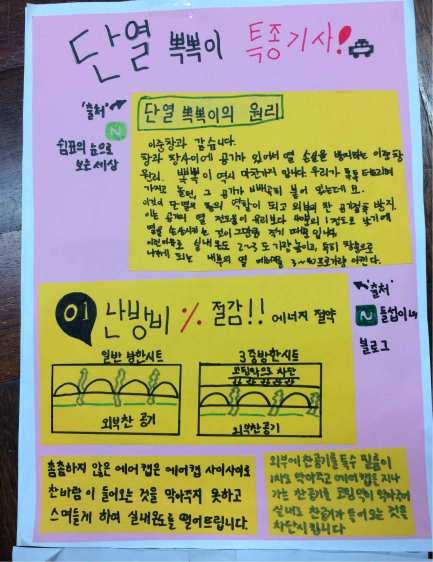 단열 뽁뽁이 특종기사!
'출처'
N
쉼표의 눈으로
보는세상
단열 뽁뽁이의 원리
이중창과 같습니다.
창과 창사이에 공기가 있어서 열 손실을 방지하는 이중창
원리. 뽁뽁이 역시 마찬가지 입니다. 우리가 톡톡 터트리며
가지고 놀던, 그 공기가 빼빽히 들어 있는데요.
이것이 단열재의 역할이 되고 외부의 찬 공기를 방지.
이는 공기의 열 전도율이 유리보다 1정도로 낮기에
열을 손실시키는 것이 그만큼 적기 때문입니다.
실내온도 2~3도 가량 높이고, 특히 창문으로
나가게 되는 내부의 열 에너지를 프로가량 아낀다.
01 난방비 % 절감!! 에너지 절약
'출처'
N 들섭이네
블로그
일반 방한시트
외부찬 공기
3중방한시트
코팅막으로 차단
외부찬공기
촘촘하지 않은 에어캡은 에어캡 사이사이로
찬바람이 들어오는 것을 막아주지 못하고
스며들게 하여 실내온도를 떨어뜨립니다.
외부에 찬공기를 특수 필름이
1차로 막아주고 에어캡은 지나
가는 찬공기를 코팅막이 막아주어
실내로 찬공기가 들어오는 것을
차단시킵니다